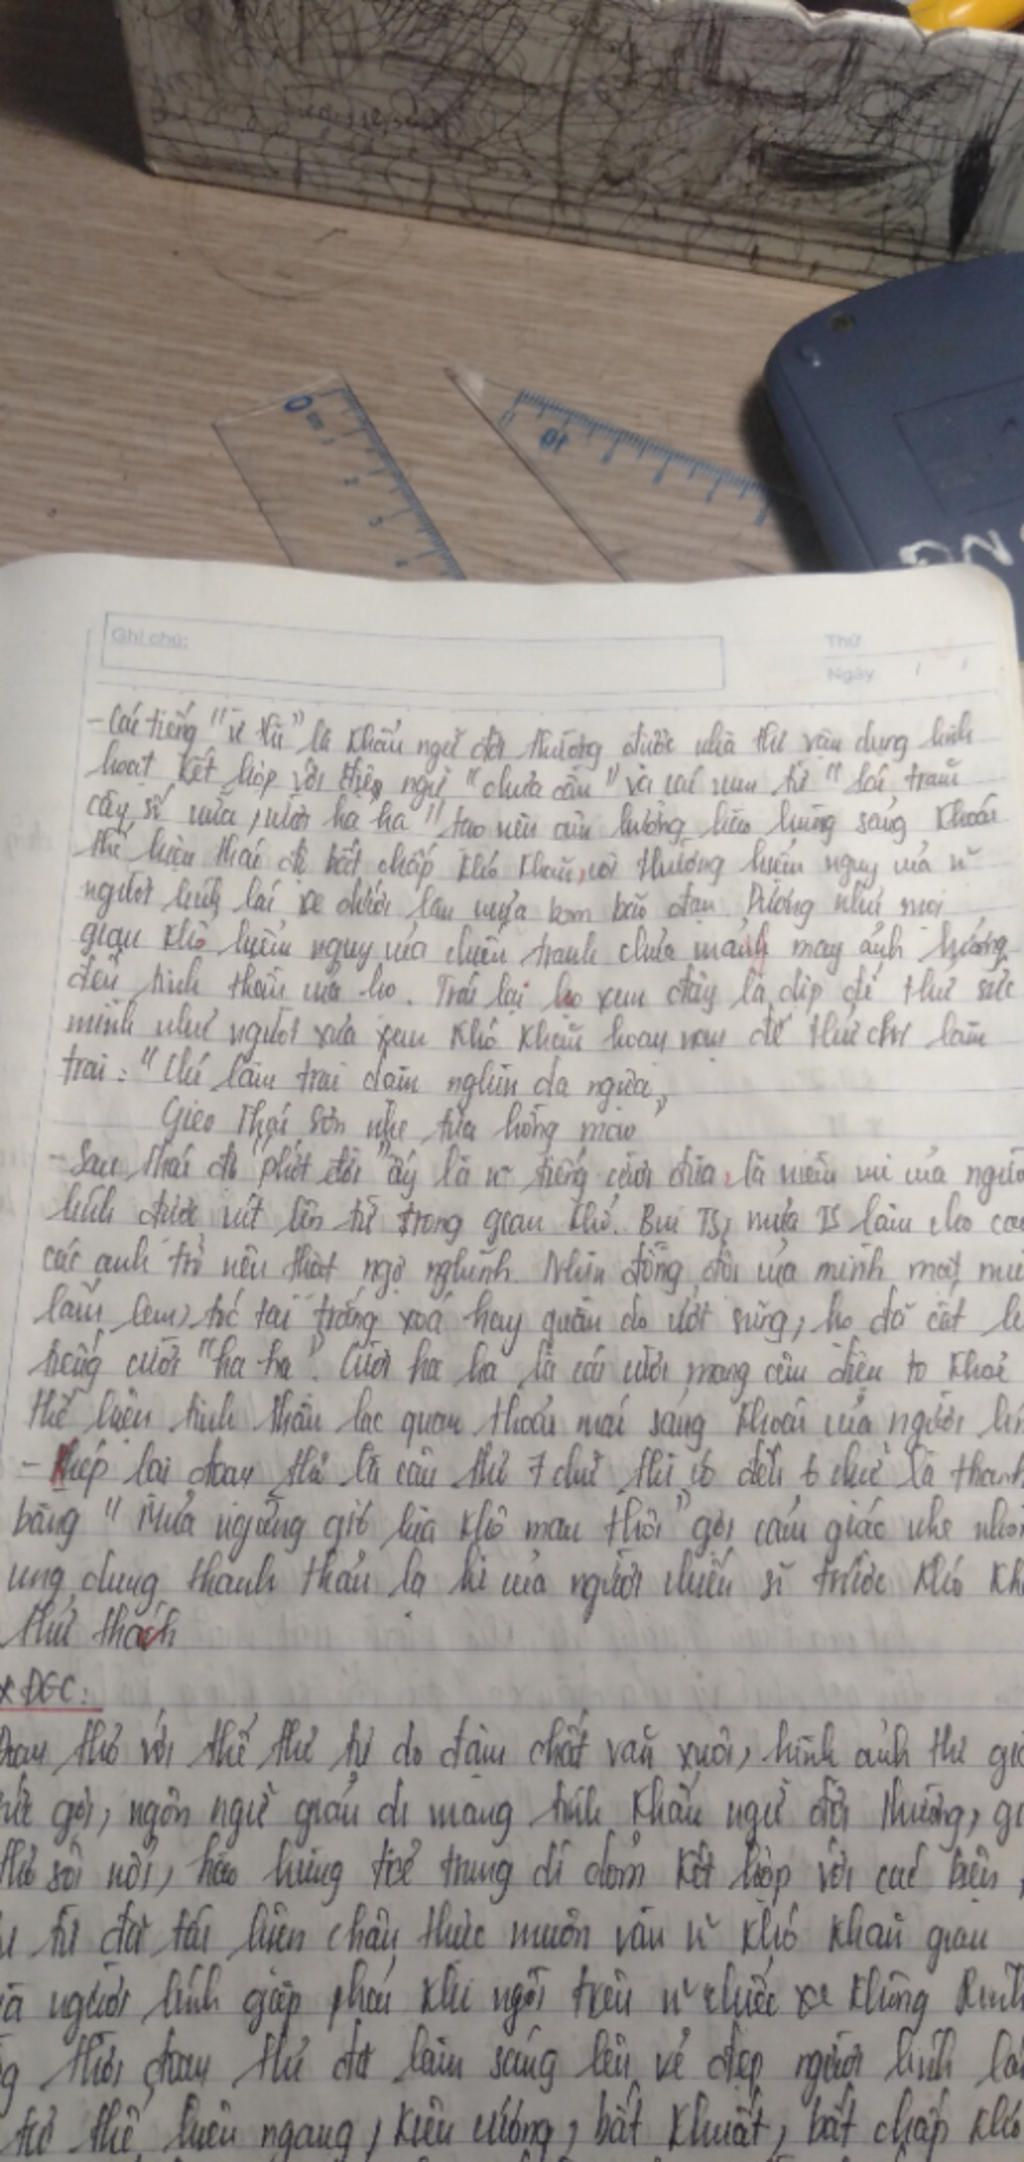 Ghi chú:
Thứ
Ngày / /
- Các tiếng "ừ thì" là khẩu ngữ đời thường được nhà thơ vận dụng linh
hoạt kết hợp với điệp ngữ "chưa cần" và cụm từ "lái trăm
cây số nữa, cười ha ha" tạo nên âm hưởng hào hùng sảng khoái
thể hiện thái độ bất chấp khó khăn, coi thường hiểm nguy của n~
người lính lái xe dưới làn mưa bom bão đạn. Dường như mọi
gian khổ hiểm nguy của chiến tranh chưa mảnh may ảnh hưởng
đến tinh thần của họ. Trái lại họ xem đây là dịp để thử sức
mình như người xưa xem khó khăn hoạn nạn để thử chí làm
trai: "Chí làm trai dặm nghìn da ngựa,
Gieo Thái Sơn nhẹ tựa hồng mao"
- Sau thái độ "phớt đời" ấy là n~ tiếng cười đùa, là niềm vui của người
lính được cất lên từ trong gian khổ. Bụi TS, mưa TS làm cho
các anh trở nên thật ngộ nghĩnh. Nhìn đồng đội của mình mặt
lấm lem, tóc tai trắng xoá hay quần áo ướt sũng, họ đã cất
tiếng cười "ha ha". Cười ha ha là cái cười mang cường điệu to khoẻ
thể hiện tinh thần lạc quan thoải mái sảng khoái của người
- Khép lại đoạn thơ là câu thơ 7 chữ thì có đến 6 chữ là thanh
bằng "Mưa ngừng gió lùa khô mau thôi" gợi cảm giác nhẹ
ung dung thanh thản lạ kì của người chiến sĩ trước khó
thử thách
* ĐGC:
Đoạn thơ với thể thơ tự do đậm chất văn xuôi, hình ảnh thơ
gợi, ngôn ngữ giản dị mang tính khẩu ngữ đời thường,
thơ sôi nổi, hào hùng trẻ trung dí dỏm kết hợp với các biện
từ đã tái hiện chân thực muôn vàn n~ khó khăn gian
người lính gặp phải khi ngồi trên n~ chiếc xe không kính
thời đoạn thơ đã làm sáng lên vẻ đẹp người lính
tư thế hiên ngang, kiên cường, bất khuất, bất chấp khó